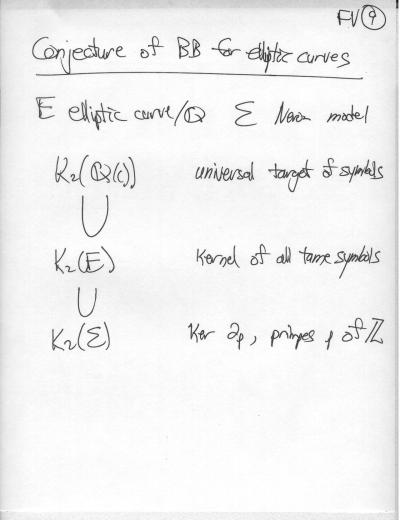 FV 9
Conjecture of BB for elliptic curves
E elliptic curve/ℚ ℰ Neron model
K₂(ℚ(C)) universal target of symbols
∪
K₂(E) kernel of all tame symbols
∪
K₂(ℰ) Ker ∂p, primes p of ℤ